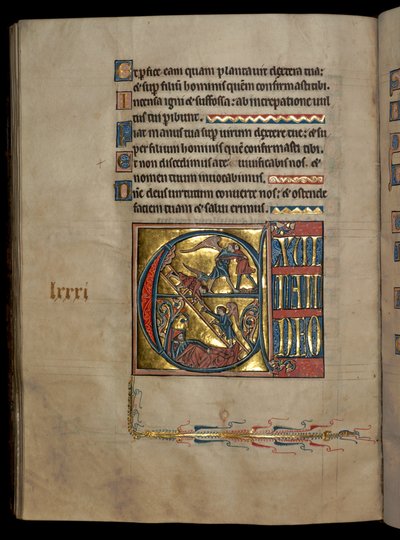 Et pfice eam quam plantavit dextera tua:
& sup filiū hominis quēm confirmasti tibi.
Incensa igni & suffossa: ab increpatione vul
tus tui pibunt.
Fiat manus tua sup virum dextere tue: & su
per filium hominis quē confirmasti tibi.
Et non discedimus a te: vivificabis nos &
nomen tuum invocabimus.
Dñe deus virtutum converte nos: & ostende
faciem tuam & salvi erimus.
lxxxi
EXUL
TATE
DEO